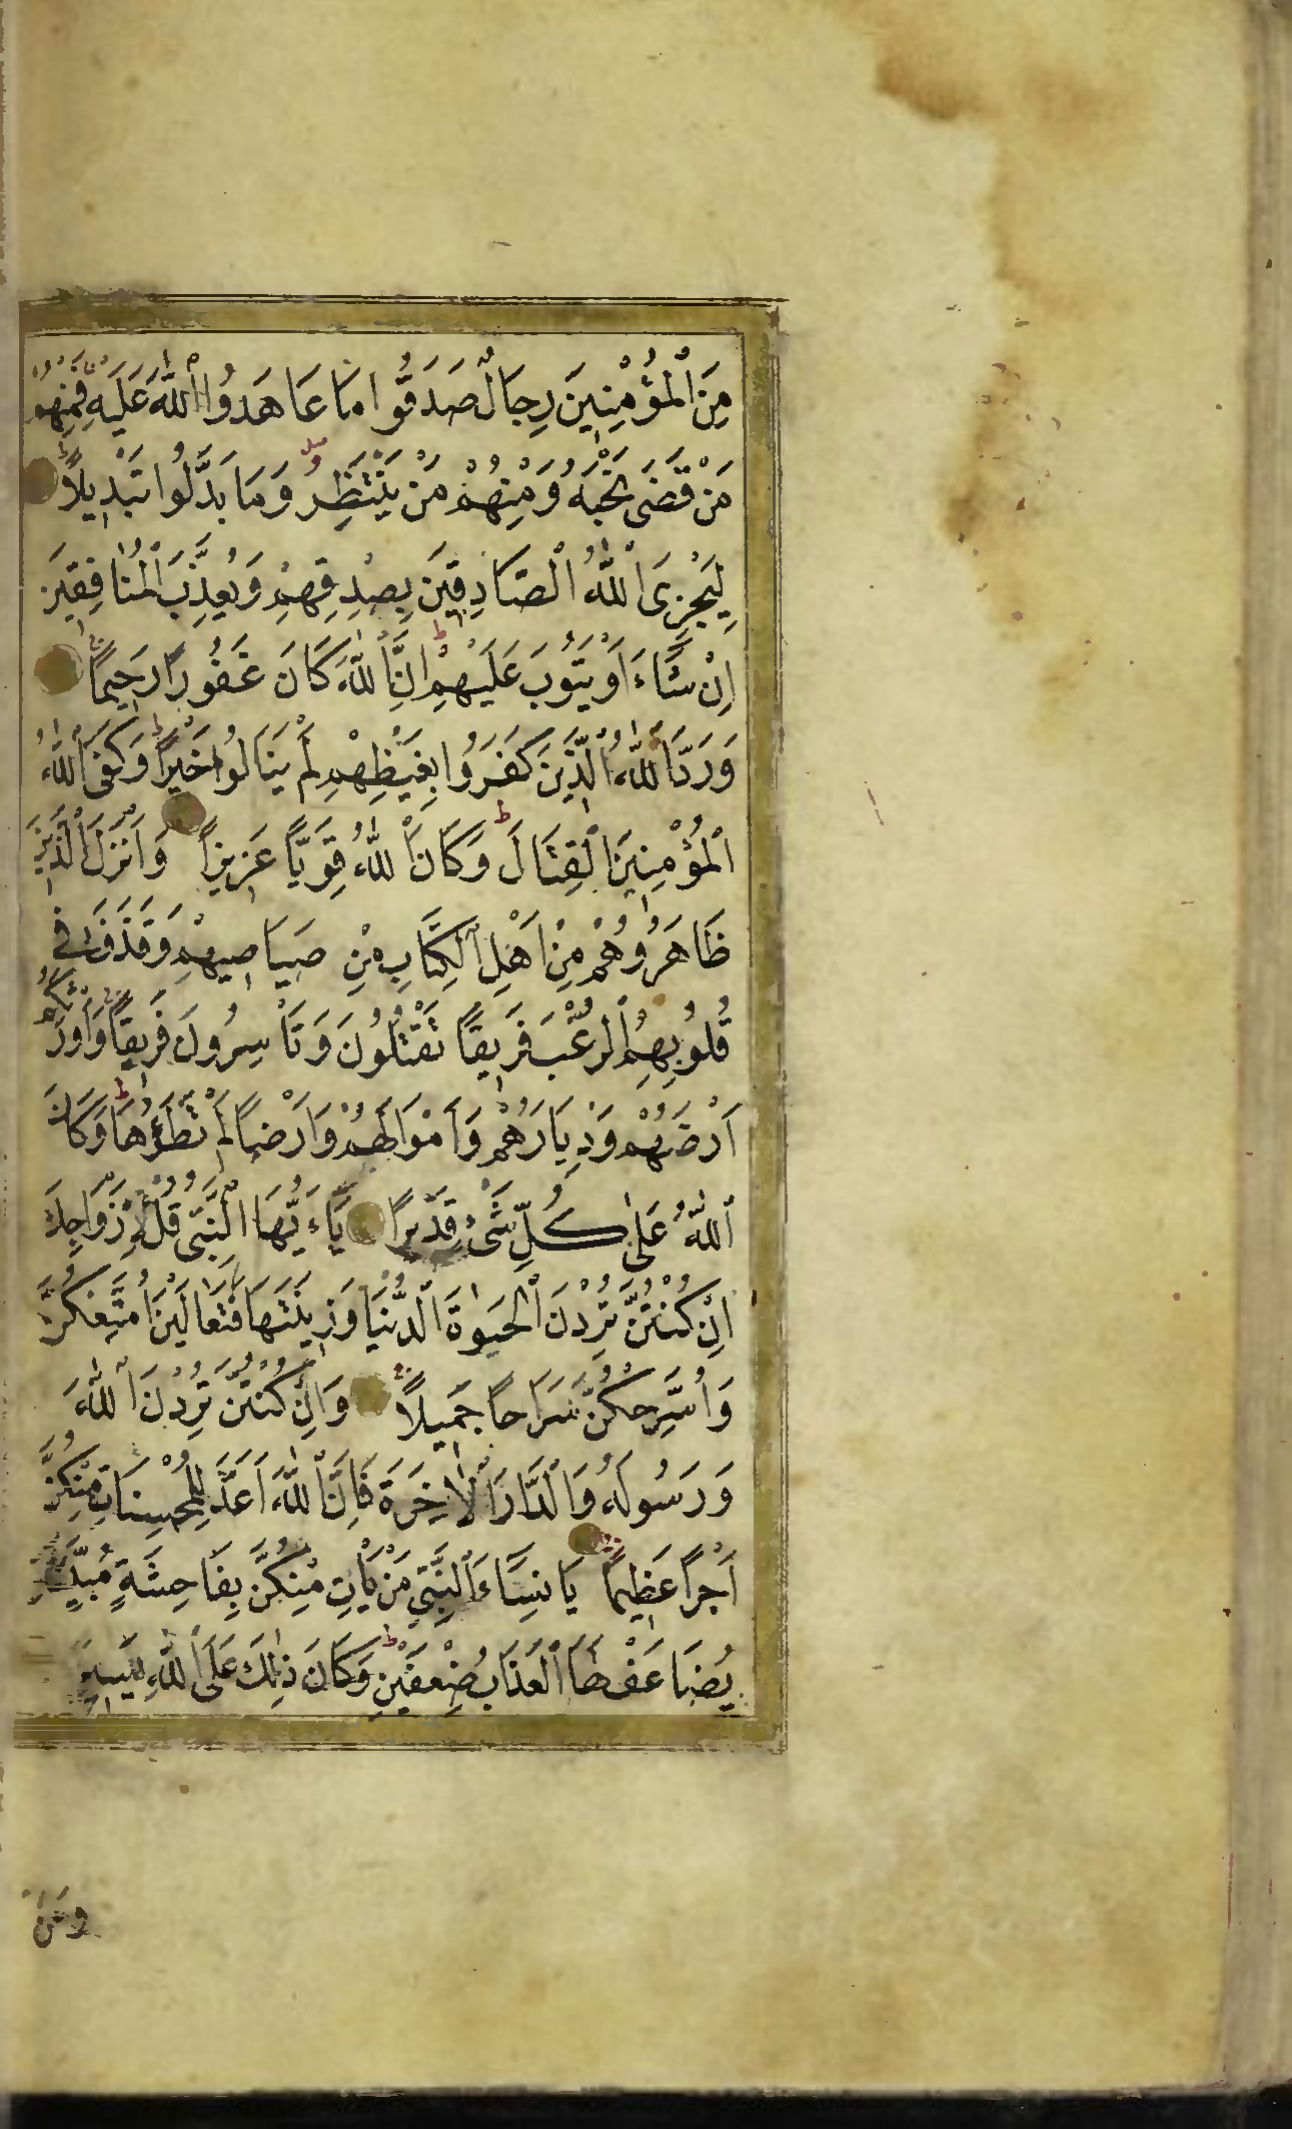 مِنَ ٱلْمُؤْمِنِينَ رِجَالٌ صَدَقُوا مَا عَاهَدُوا ٱللّٰهَ عَلَيْهِ فَمِنْهُمْ
مَنْ قَضَىٰ نَحْبَهُ وَمِنْهُمْ مَنْ يَنْتَظِرُ وَمَا بَدَّلُوا تَبْدِيلًا
لِيَجْزِىَ ٱللّٰهُ ٱلصَّادِقِينَ بِصِدْقِهِمْ وَيُعَذِّبَ ٱلْمُنَافِقِينَ
اِنْ شَاءَ اَوْ يَتُوبَ عَلَيْهِمْ اِنَّ ٱللّٰهَ كَانَ غَفُورًا رَحِيمًا
وَرَدَّ ٱللّٰهُ ٱلَّذِينَ كَفَرُوا بِغَيْظِهِمْ لَمْ يَنَالُوا خَيْرًا وَكَفَى ٱللّٰهُ
ٱلْمُؤْمِنِينَ ٱلْقِتَالَ وَكَانَ ٱللّٰهُ قَوِيًّا عَزِيزًا وَاَنْزَلَ ٱلَّذِينَ
ظَاهَرُوهُمْ مِنْ اَهْلِ ٱلْكِتَابِ مِنْ صَيَاصِيهِمْ وَقَذَفَ فِى
قُلُوبِهِمُ ٱلرُّعْبَ فَرِيقًا تَقْتُلُونَ وَتَاْسِرُونَ فَرِيقًا وَاَوْرَثَكُمْ
اَرْضَهُمْ وَدِيَارَهُمْ وَاَمْوَالَهُمْ وَاَرْضًا لَمْ تَطَؤُهَا وَكَانَ
ٱللّٰهُ عَلٰى كُلِّ شَىْءٍ قَدِيرًا يَاءَيُّهَا ٱلنَّبِىُّ قُلْ لِاَزْوَاجِكَ
اِنْ كُنْتُنَّ تُرِدْنَ ٱلْحَيٰوةَ ٱلدُّنْيَا وَزِينَتَهَا فَتَعَالَيْنَ اُمَتِّعْكُنَّ
وَاُسَرِّحْكُنَّ سَرَاحًا جَمِيلًا وَاِنْ كُنْتُنَّ تُرِدْنَ ٱللّٰهَ
وَرَسُولَهُ وَٱلدَّارَ ٱلْاٰخِرَةَ فَاِنَّ ٱللّٰهَ اَعَدَّ لِلْمُحْسِنَاتِ مِنْكُنَّ
اَجْرًا عَظِيمًا يَا نِسَاءَ ٱلنَّبِىِّ مَنْ يَأْتِ مِنْكُنَّ بِفَاحِشَةٍ مُبَيِّنَةٍ
يُضَاعَفْ لَهَا ٱلْعَذَابُ ضِعْفَيْنِ وَكَانَ ذٰلِكَ عَلَى ٱللّٰهِ يَسِيرًا
وَمَنْ